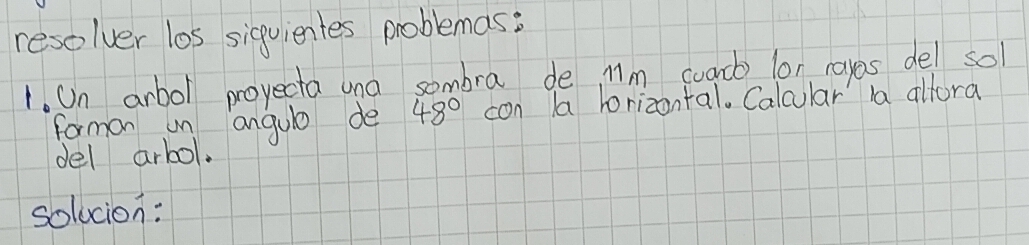 resolver los siguientes problemas:
1. Un arbol proyecta una sombra de 11m cuardo lor rayos del sol
forman un angulo de 48° con la horizontal. Calcular la altura
del arbol.
solución: